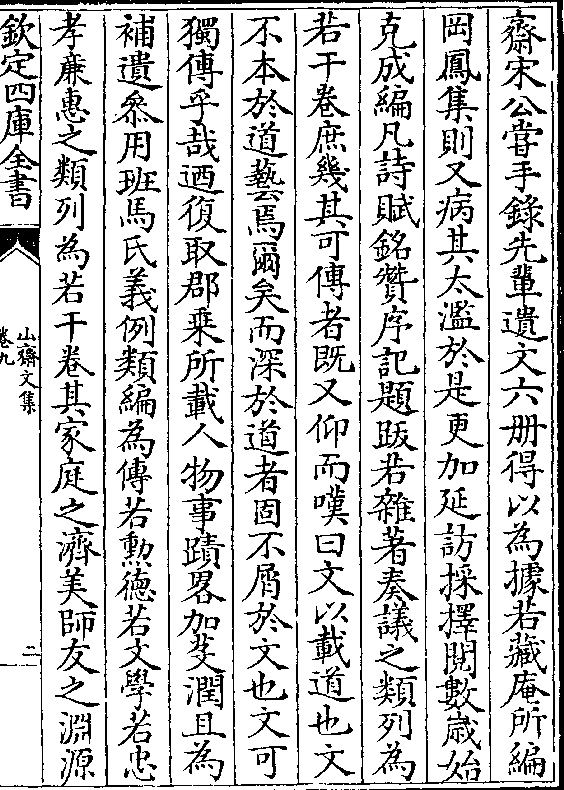 齋宋公嘗手錄先輩遺文六册得以為據若藏庵所編
岡鳳集則又病其太濫於是更加延訪採擇閱數歲始
克成編凡詩賦銘贊序記題䟦若雜著奏議之類列為
若干卷庶幾其可傳者既又仰而嘆曰文以載道也文
不本於道藝焉爾矣而深於道者固不屑於文也文可
獨傳乎哉迺復取郡乗所載人物事蹟畧加芟潤且為
補遺叅用班馬氏義例類編為傳若勲德若文學若忠
孝亷惠之類列為若干卷其家庭之濟美師友之淵源
欽定四庫全書
山齋文集
卷九
二